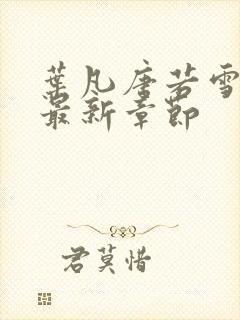 葉凡唐若雪
最新章節
君莫惜